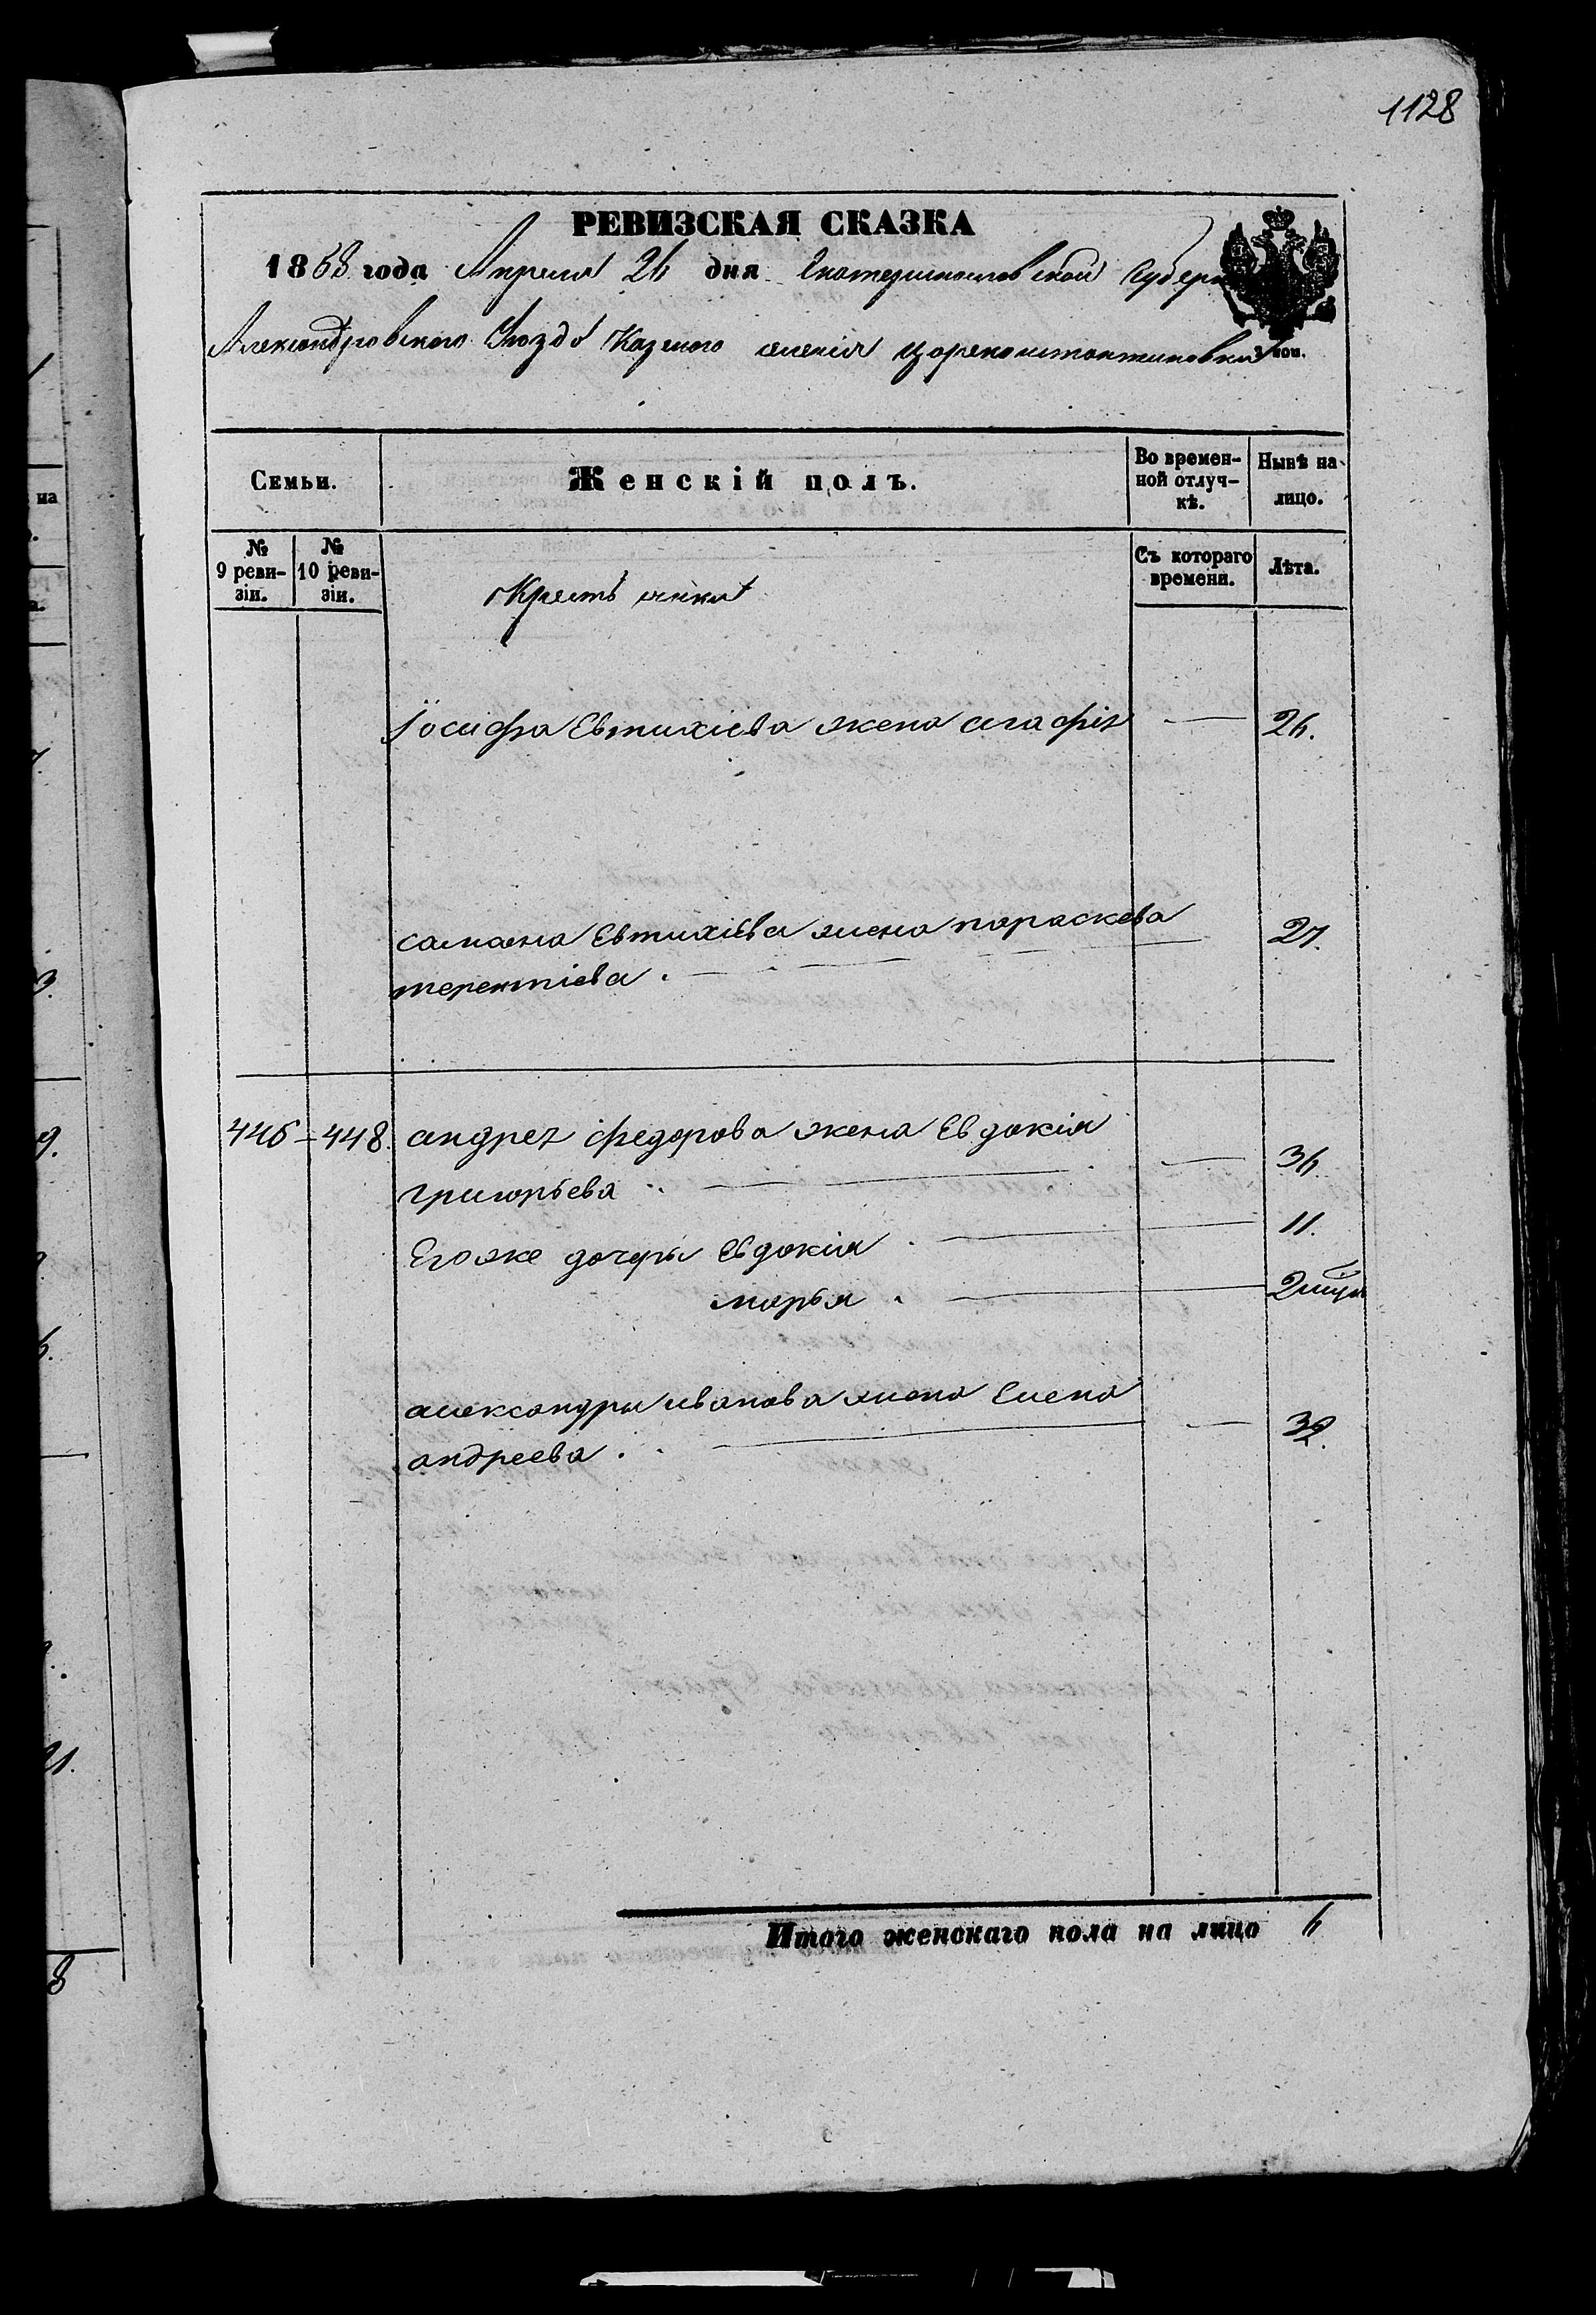 1128
РЕВИЗСКАЯ СКАЗКА
1858 года Апреля 26 дня Екатеринославской Губер
Александровского Уезда Казеного селения Цареконстантиновки
3 коп.
Семьи.
Женскій полъ.
Во времен-
ной отлуч-
кѣ.
Нынѣ на
лицо.
№
9 реви-
зіи.
№
10 реви-
зіи.
Крестьянки
Съ котораго
времени.
Лѣта.
Іосифа Евтихіева жена агафія — 26.
самона Евтихіева жена параскева 27.
терентіева
446 – 448. андрея федорова жена Евдокія
григорьева — 36
Егоже дочеры Евдокія — 11.
марья —
александры иванова жена Елена
андреева — 32.
Итого женскаго пола на лицо 6
на
3.
9.
21.
8